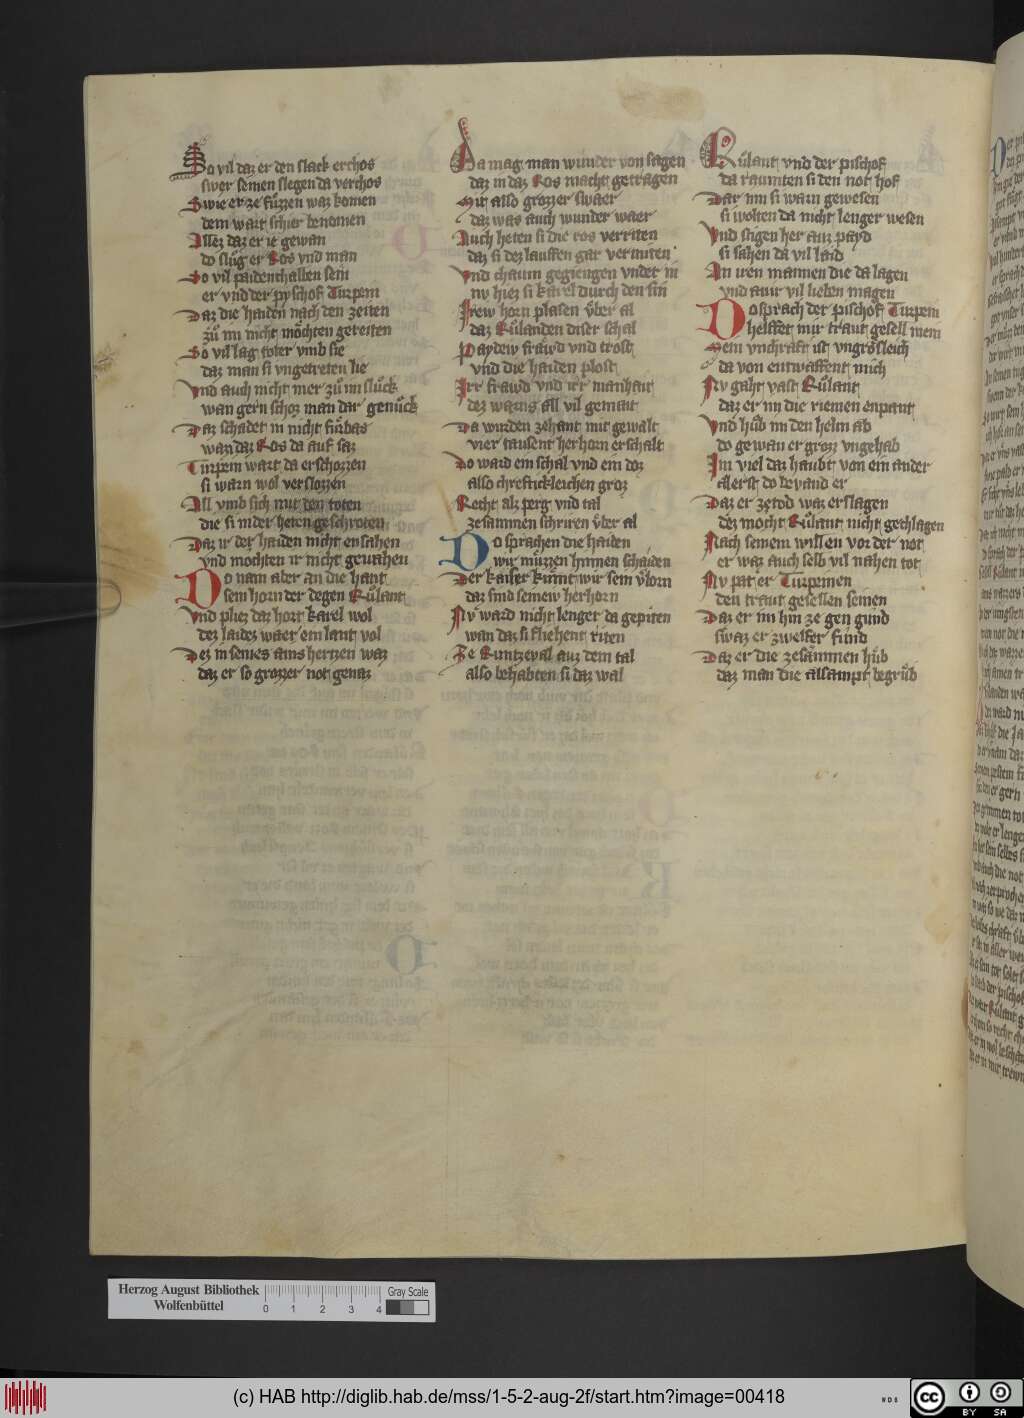 So vil daz er den slack erchos
swer seinen slegen da verchos
Swie er ze füzzen waz komen
dem wart schier benomen
Allez daz er ie gewan
do slůg er Ros vnd man
So vil paidenthalben sein
er vnd der pyschof Turpein
Daz die haiden nach den zeiten
zů im nicht möchten gereiten
So vil lag toter vmb sie
daz man si vngetreten lie
Vnd auch nicht mer zů im slůck
wan gern schoz man dar genůck
Daz schadet in nicht fürbas
wan daz Ros da auf saz
Turpein wart da erschozzen
si warn wol verslozzen
All vmb sich mit den toten
die si in der heten geschroten
Daz ir der haiden nicht ensahen
vnd mochten ir nicht genahen
Do nam aber an die hant
sein horn der degen Růlant
Vnd pliez daz hort karel wol
dez laidez waer ein lant vol
Dez in seines ains hertzen waz
daz er so grozzer not genaz
Da mag man wunder von sagen
daz in daz Ros macht getragen
Mit also grozzer swaer
daz was auch wunder waer
Auch heten si die ros verriten
daz si dez lauffen gar vermiten
Vnd chaum gegiengen vnder in
nv hiez si karel durch den sin
Irew horn plasen vber al
daz Růlanden diser schal
Paydew fräwd vnd trost
vnd die haiden plost
Irr frawd vnd irr manhait
dez warns all vil gemait
Da wurden zehant mit gewalt
vier tausent herhorn erschalt
Do ward ein schal vnd ein doz
also chreftickleichen groz
Recht alz perg vnd tal
zesamnen schriren vber al
Do sprachen die haiden
wir müzzen hinnen schaiden
Der kaiser kumt wir sein vlorn
daz sind seinew herhorn
Nv ward nicht lenger da gepiten
wan daz si fliehent riten
Ze Runtzeval auz dem tal
also behabten si daz wal
Růlant vnd der pischof
da raumten si den not hof
Dar inn si warn gewesen
si wolten da nicht lenger wesen
Vnd stigen her auz payd
si sahen da vil laid
An iren mannen die da lagen
vnd auir vil lieben magen
Do sprach der pischof Turpein
helffet mir traut gesell mein
Mein vnchraft ist vngrösleich
da von entwaffent mich
Nv gaht vast Růlant
daz er im die riemen enpant
Vnd hůb im den helm ab
do gewan er groz vngehab
Im viel daz haubt von ein ander
all erst do bevand er
Daz er zetod waz erslagen
dez mocht Růlant nicht gechlagen
Nach seinem willen vor der not
er waz auch selb vil nahen tot
Nv pat er Turpeinen
den traut gesellen seinen
Daz er im hin ze gen gund
swaz er zwelfer fund
Daz er die zesammen hůb
daz man die allsampt begrůb
Herzog August Bibliothek
Wolfenbüttel
0 1 2 3 4
Gray Scale
(c) HAB http://diglib.hab.de/mss/1-5-2-aug-2f/start.htm?image=00418
cc BY SA